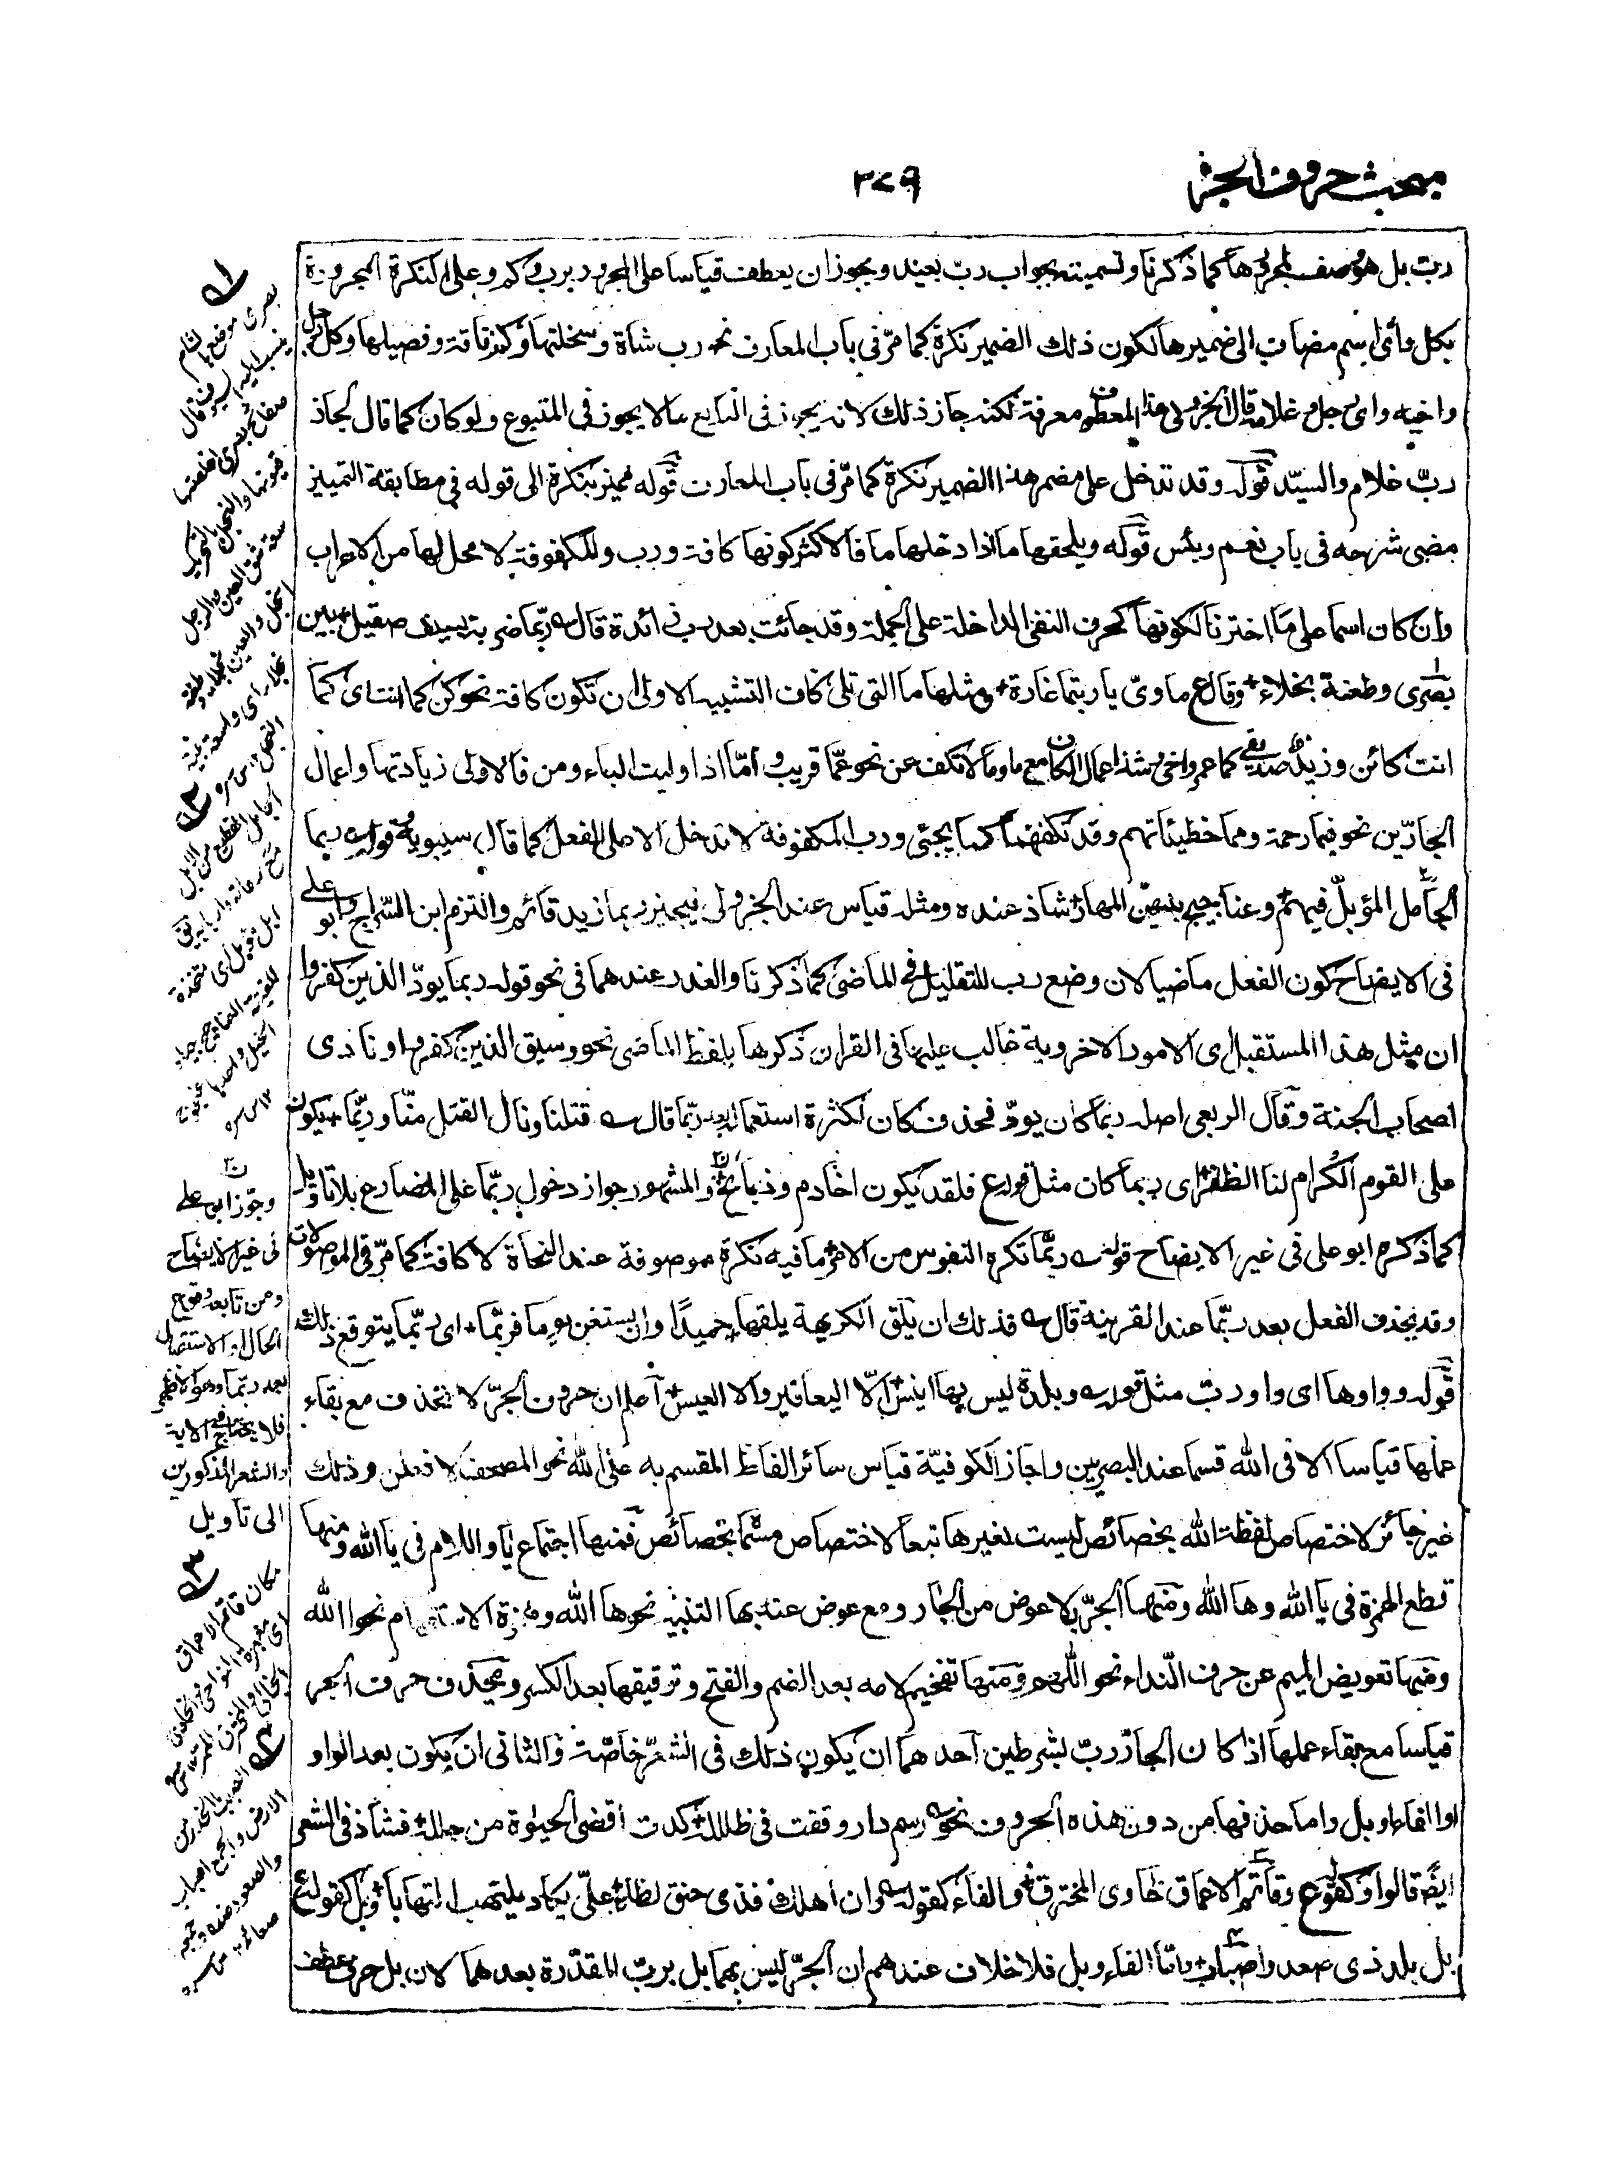 مبحث حروف الجر
٣٧٩
رب بل هو صف لمجرورها كما ذكرنا وتسميته بجواب رب بعيد ويجوز ان يعطف قياسا على المجرور برب وكم وعلى النكرة المجرورة
بكل وأى اسم مضاف الى ضميرها لكون ذلك الضمير نكرة كما مرّ فى باب المعارف نحو رب شاة وسخلتها وكم ناقة وفصيلها وكل رجل
واخيه واى رجل وغلامه قال الجزولى هذا المعطوف معرفة لكنه جاز ذلك لانه يجوز فى التابع ما لا يجوز فى المتبوع ولو كان كما قال لجاز
ربّ غلام والسيّد قوله وقد تدخل على مضمر هذا الضمير نكرة كما مرّ فى باب المعارف قوله مميز بنكرة الى قوله فى مطابقة التمييز
مضى شرحه فى باب نعم وبئس قوله ويلحقها ما اذا دخلها ما فالاكثر كونها كافة ورب والمكفوفة لا محل لها من الاعراب
وان كان اسما على ما اخترنا لكونها كحرف النفى الداخلة على الجملة وقد جائت بعد رب زائدة قال ربّما ضربة بسيف صقيل + بين
بصرى وطعنة نجلاء + وقال ع ماوىّ يا ربتما غارة + ومثلها ما التى تلى كاف التشبيه الاولى ان تكون كافة نحو كن كما انت اى كما
انت كائن وزيد صديقى كما عمرو اخى وشذ اعمال الكاف مع ما وما لا تكف عن نحو عمّا قريب وأمّا اذا وليت الباء ومن فالاولى زيادتها واعمال
الجارّين نحو فبما رحمة ومما خطيئاتهم وقد تكفهما كما يجئى ورب المكفوفة لا تدخل الا على الفعل كما قال سيبويه قوله ربما
الجامل المؤبلّ فيهم + وعناجيج بينهنّ المهار + شاذ عنده ومثله قياس عند الجزولى فيجيز ربما زيد قائم والتزم ابن السّراج وابو على
فى الايضاح كون الفعل ماضيا لان وضع رب للتقليل فى الماضى كما ذكرنا والعذر عندهما فى نحو قوله ربما يودّ الذين كفروا
ان مثل هذا المستقبل اى الامور الاخروية غالب عليها فى القران ذكرها بلفظ الماضى نحو وسيق الذين كفروا ونادى
اصحاب الجنة وقال الربعى اصله ربما كان يودّ فحذف كان لكثرة استعماله بعد ربّما قال قتلنا ونال القتل منّا وربّما + يكون
على القوم الكرام لنا الظفر + اى ربما كان مثل قوله ع فلقد يكون اخا دم وذبائح + والمشهور جواز دخول ربّما على المضارع بلا تاويل
كما ذكره ابو على فى غير الايضاح قوله ربّما تكره النفوس من الامر ما فيه نكرة موصوفة عند النحاة لا كافة كما مرّ فى الموصولات
وقد يحذف الفعل بعد ربّما عند القرينة قال فذلك ان يلق الكريهة يلقها + حميدًا وان يستغن يوما فربّما + اى ربّما يتوقع ذلك
قوله وواوها اى واو ربّ مثل قوله وبلدة ليس بها انيس + إلّا اليعافير والا العيس + اعلم ان حروف الجرّ لا تحذف مع بقاء
عملها قياسا الا فى الله قسما عند البصريين واجاز الكوفيّة قياس سائر الفاظ المقسم به على الله نحو المصحف لافعلن وذلك
غير جائز لاختصاص لفظة الله بخصائص ليست لغيرها تبعا لاختصاص مسمّاها بخصائص فمنها اجتماع يا واللام فى يا الله ومنها
قطع الهمزة فى يا الله وها الله ومنها الجرّ بلا عوض من الجار ومع عوض عنه بها التنبيه نحو ها الله وهمزة الاستفهام نحو الله
ومنها تعويض الميم عن حرف النّداء نحو اللهم ومنها تفخيم لامه بعد الضم والفتح وترقيقها بعد الكسر ويحذف حرف الجر
قياسا مع بقاء عملها اذا كان الجارّ ربّ بشرطين أحدهما ان يكون ذلك فى الشعر خاصّة والثانى ان يكون بعد الواو
او الفاء او بل واما حذفها من دون هذه الحروف نحو رسم دار وقفت فى طلله + كدت أقضى الحيوة من جلله + فشاذ فى الشعر
ايضا قالوا وكقوله ع وقاتم الاعماق خاوى المخترق + والفاء كقوله وان أهلك فذى حنق لظاه + علىّ يكاد يلتهب التهابا + وبل كقوله ع
بل بلد ذى صعد واصباب + وامّا الفاء وبل فلا خلاف عندهم ان الجرّ ليس بهما بل بربّ المقدّرة بعدهما لان بل حرف عطف
١
بصرى موضع بالشام
ينسب اليه السيوف قال
صفائح بصرى اخلصتها
قيونها والنجل بالتحريك
سعة شق العين والرجل
انجل والعين نجلاء وطعنة
نجلاء اى واسعة
٢
الجامل القطيع من الابل
مع رعاته واربابه
ابل مؤبل اى متخذة
للقنية العناجيج جياد
الخيل واحدها عنجوج
١٢ ص
ن
وجوّز ابو على
فى غير الايضاح
ومن تابعه وقوع
الحال او الاستقبال
بعد ربّما وهو الاظهر
فلا يحتاج فى الاية
والشعر المذكورين
الى تاويل
٣
مكان قاتم الاعماق
اى مغبر النواحى
٤
الصبب ما انحدر من
الارض والجمع اصباب
والصعود ضده وجمعه
صعائد